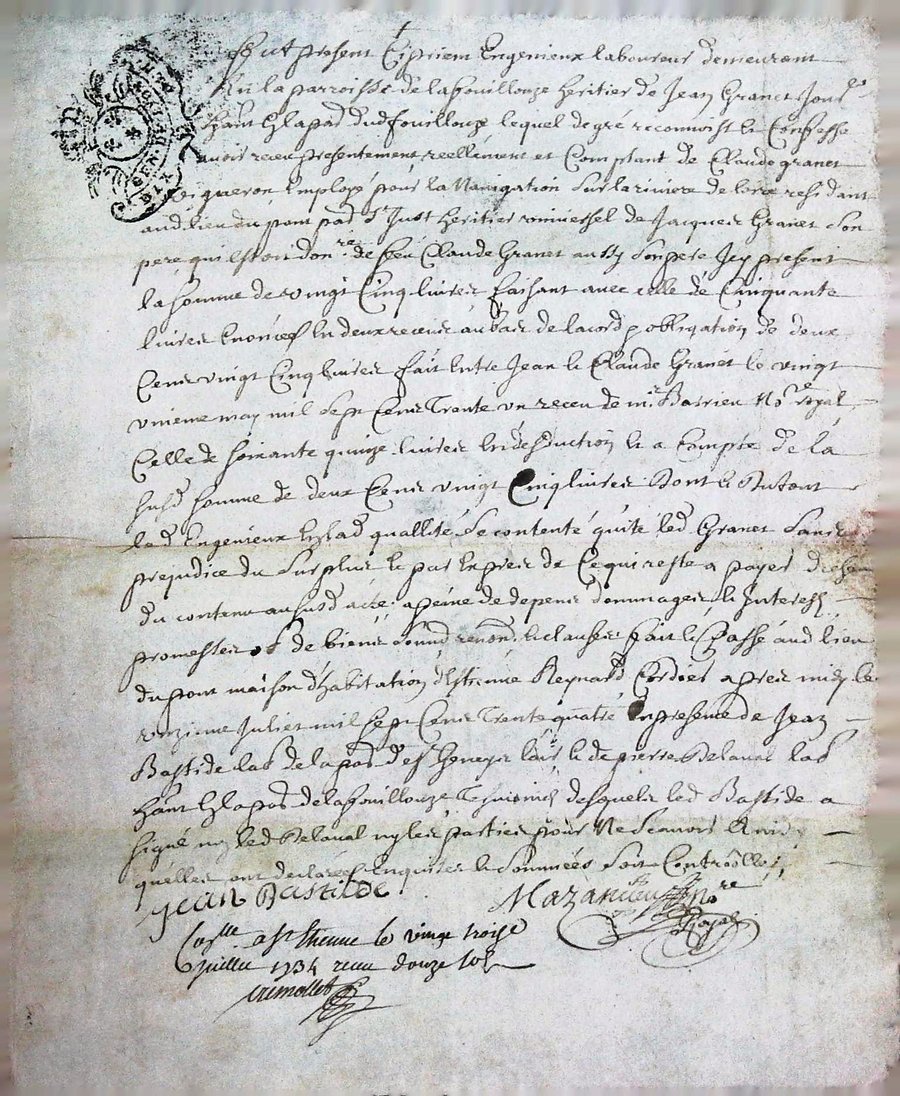 fut present Cipriem Engenieux laboureur demeurant
En la parroisse de la fouillouze heritier de Jean Granet
dud fouillouze lequel de gré reconnoist & Confesse
avoir receu presentement reellement et Comptant de Claude granet
Employé pour la Navigation sur la riviere de loire residant
aud lieu du pont par St Just heritier universel de Jacques Granet son
pere, qui estoit don.re de feu Claude Granet aussy son pere Icy present
la somme de vingt Cinq livres faisant avec celle de Cinquante
livres Enoncé En deux receus au bas de lacord obligation de deux
Cens vingt Cinq livres fait Entre Jean & Claude Granet le vingt
unieme may mil sept Cens Trente un receu de mr No.re royal
Celle de soixante quinze livres En deduction & a Compte de la
susd somme de deux Cens vingt Cinq livres Dont & du tout
led Engenieux quallité se contente quite led Granet sans
prejudice du surplus & par Expres de Ce qui reste a payer
du contenu ausd acte a peine de depens dommages & Interests
promesses de biens renond & clauses fait & Passé aud lieu
du pont maison d'habitation d'Estienne Reynard Cordier apres midy le
onzieme Juliet mil sept Cens Trente quatre En presence de Jean
Bastide lab de la par de St & de pierre Delaval lab
hant En la par de la fouillouze Tesmoins desquels led Bastide a
signé ny led Delaval ny les parties pour Ne Scavoir
quelles ont declarées Enquises & Sommées Soit Controollé
Jean Bastide
No.re
Royal
a St Etienne le vingt troise
juillet 1734 receu douze sols